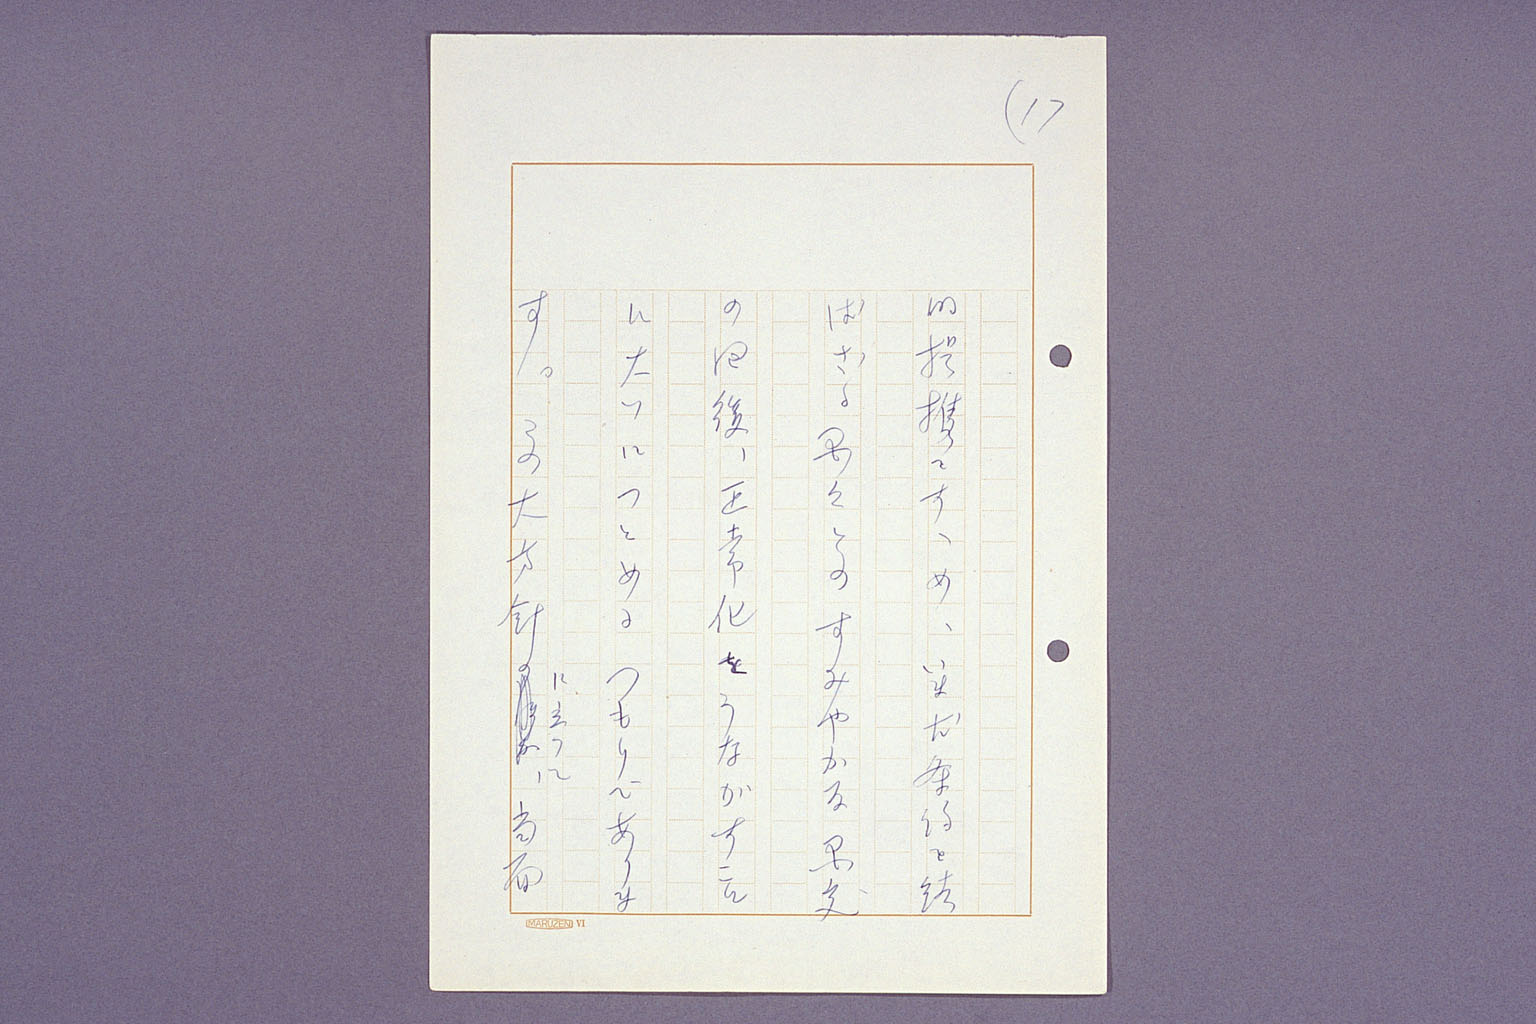 (17
的提携をすゝめ、いまだ条約を結
ばざる国々とのすみやかな国交
の回復、正常化をうながすこと
に大いにつとめるつもりであります
す。この大方針の
に立つて
、当面
MARUZEN VI